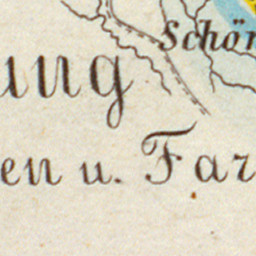 Schön
ung
en u. Far